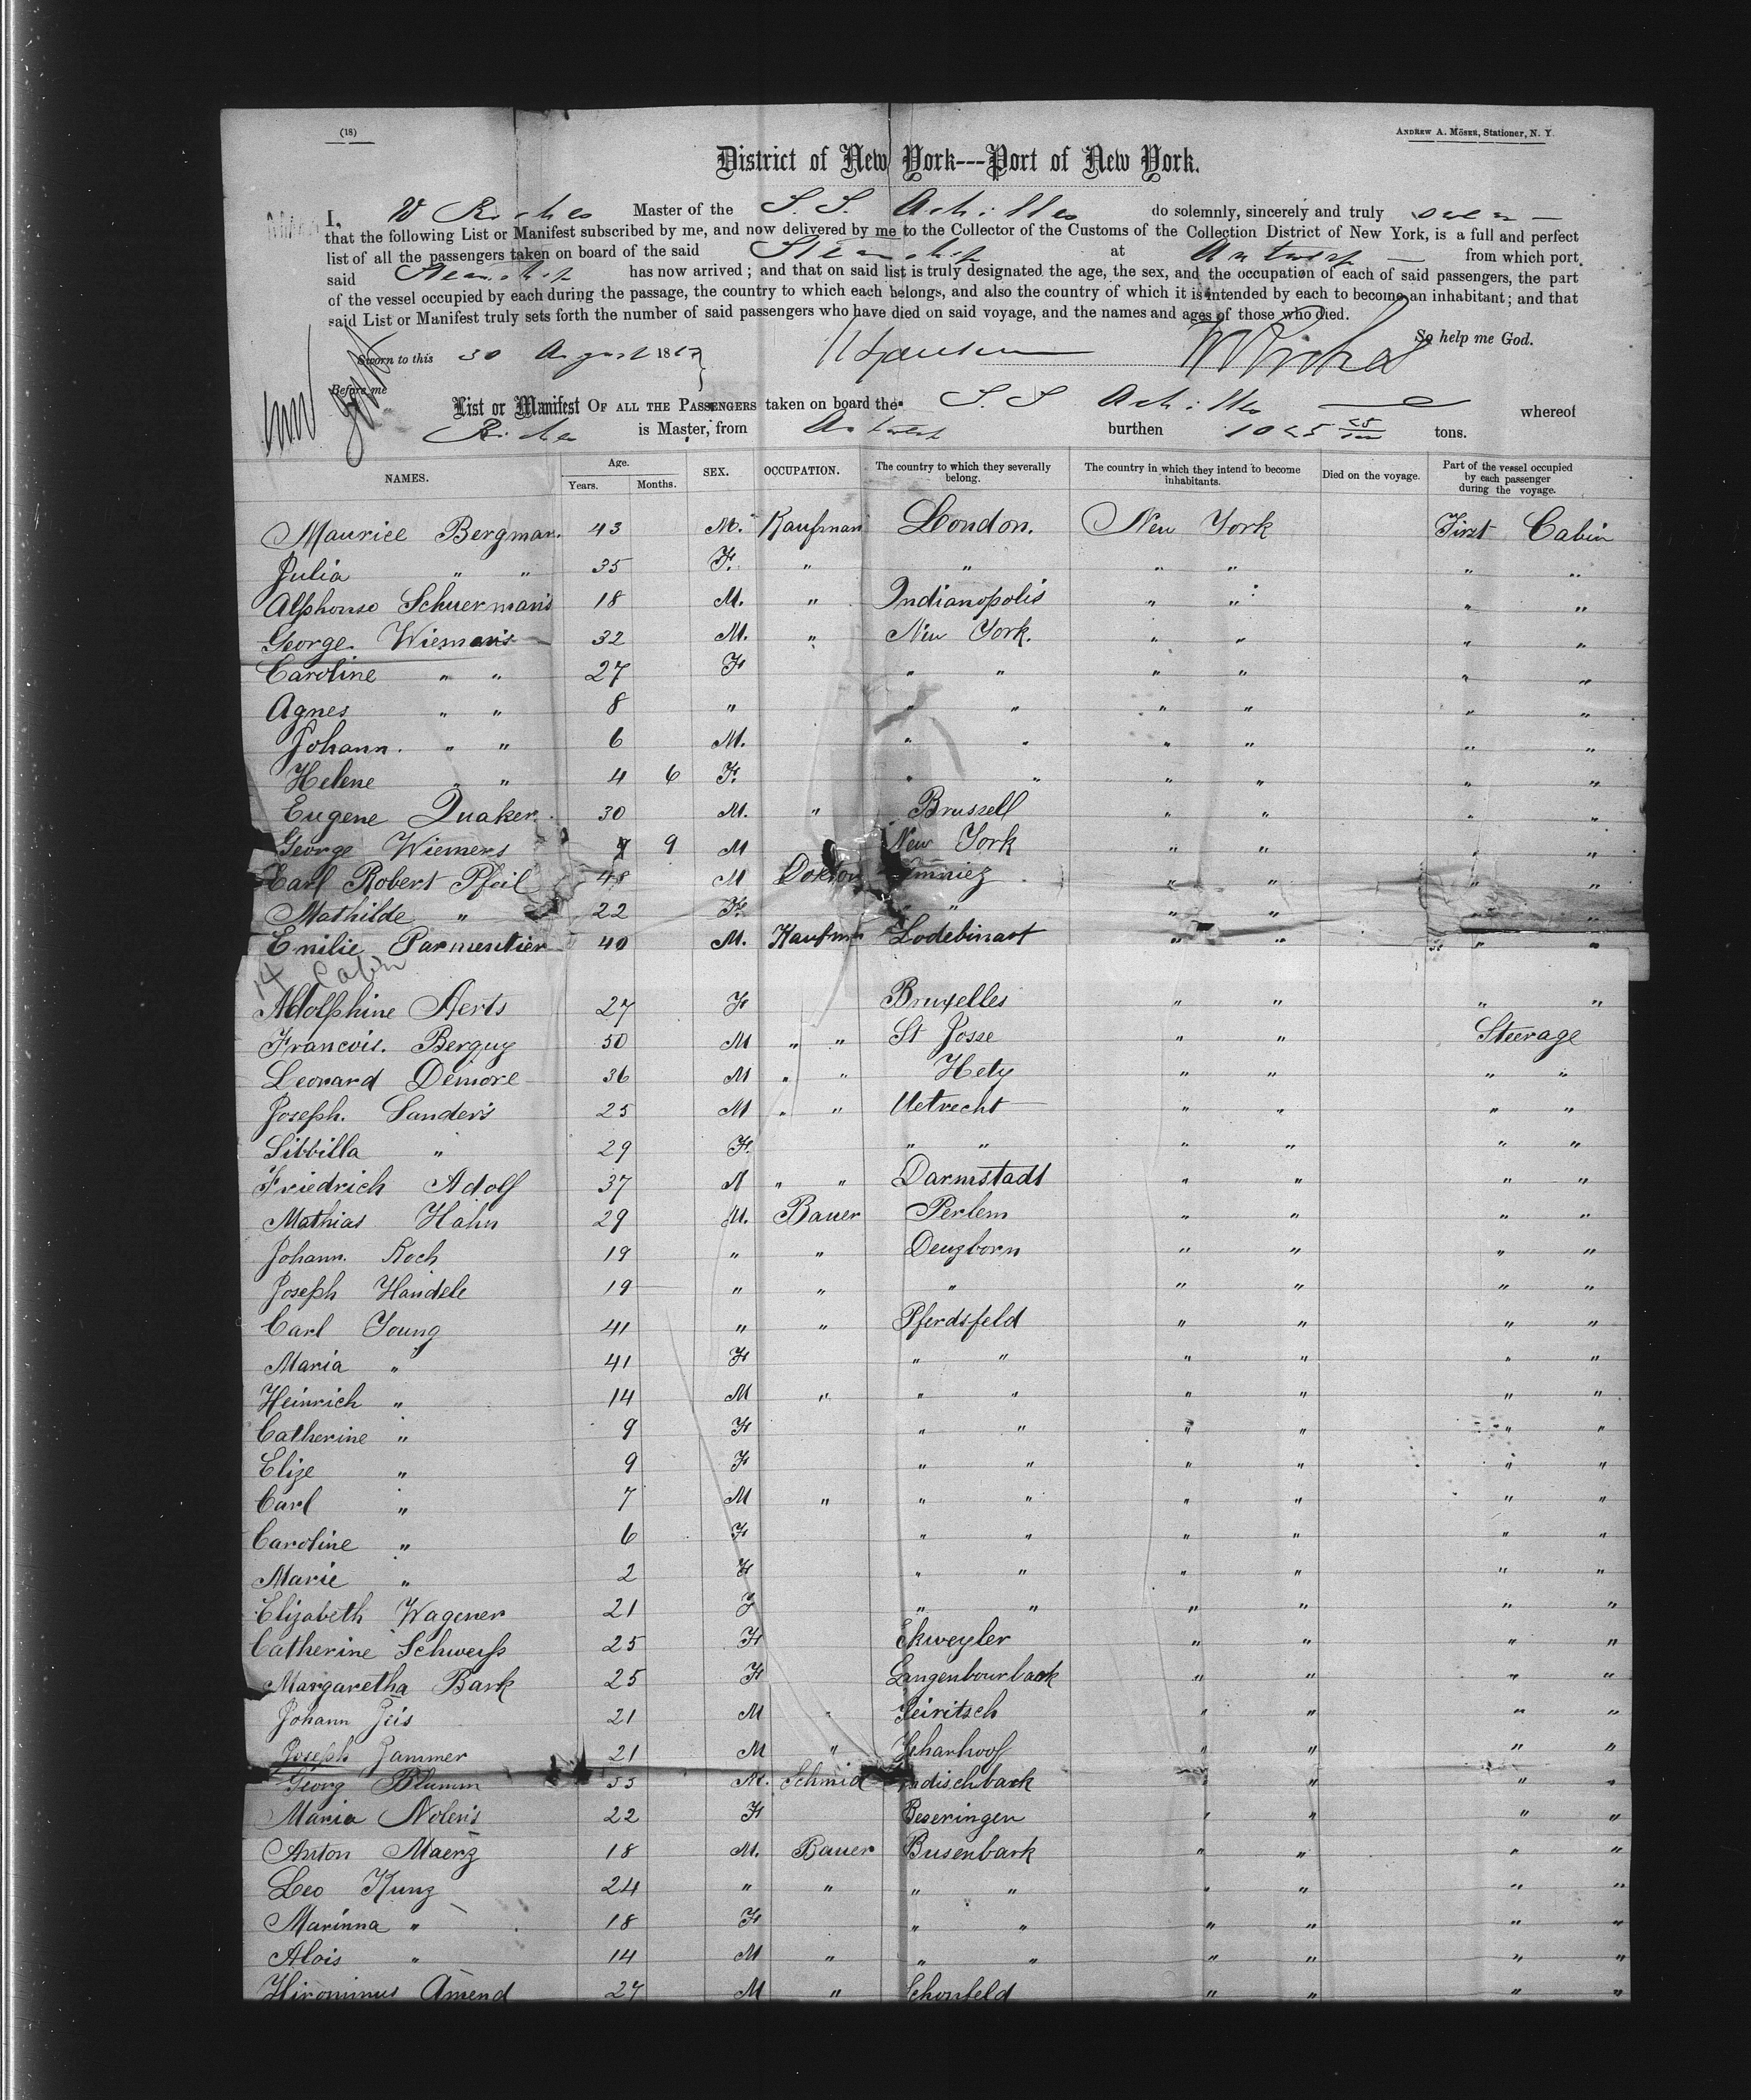 (18)
ANDREW A. MÖSER, Stationer, N. Y.
District of New York---Port of New York.
I, W Riches Master of the S. S. Achilles do solemnly, sincerely and truly swear
that the following List or Manifest subscribed by me, and now delivered by me to the Collector of the Customs of the Collection District of New York, is a full and perfect
list of all the passengers taken on board of the said Steamship at Antwerp from which port
said Steamship has now arrived; and that on said list is truly designated the age, the sex, and the occupation of each of said passengers, the part
of the vessel occupied by each during the passage, the country to which each belongs, and also the country of which it is intended by each to become an inhabitant; and that
said List or Manifest truly sets forth the number of said passengers who have died on said voyage, and the names and ages of those who died.
So help me God.
Sworn to this 30 August 186
Before me
List or Manifest OF ALL THE PASSENGERS taken on board the S. S Achilles whereof
Riches is Master, from Antwerp burthen 1025 25/100 tons.
NAMES. Age. Years. Months. SEX. OCCUPATION. The country to which they severally belong. The country in which they intend to become inhabitants. Died on the voyage. Part of the vessel occupied by each passenger during the voyage.
Maurice Bergman. 43 M. Kaufman London. New York First Cabin
Julia " " 35 F. " " " " " "
Alphonse Schuerman's 18 M. " Indianopolis " " " "
George Wieman's 32 M. " New York. " " " "
Caroline " " 27 F " " " " " "
Agnes " " 8 " " " " " " "
Johann. " " 6 M. " " " " " "
Helene " " 4 6 F. " " " " " "
Eugene Quaker. 30 M. " Brussell " " " "
George Wiemers 9 M New York " " " "
Carl Robert Pfeil 48 M Doktor " " " "
Mathilde " 22 F. " " " " " "
Emilie Parmentier 40 M. Kaufmn Lodebinart " " " "
14 Cabin
Adolphine Aerts 27 F Bruxelles " " " "
Francois. Berguy 50 M " " St Josse " " Steerage
Leonard Demore 36 M " " Hety " " " "
Joseph. Sander's 25 M " " Uetrecht " " " "
Sibbilla " 29 F. " " " " " "
Friedrich Adolf 37 M " " Darmstadt " " " "
Mathias Hahn 29 M. Bauer Perlem " " " "
Johann. Koch 19 " " Deuzborn " " " "
Joseph Handele 19 " " " " " " "
Carl Young 41 " " Pferdsfeld " " " "
Maria " 41 F " " " " " "
Heinrich " 14 M " " " " " " "
Catherine " 9 F " " " " " "
Elize " 9 F " " " " " "
Carl " 7 M " " " " " " "
Caroline " 6 F " " " " " "
Marie " 2 F " " " " " "
Elizabeth Wagener 21 F " " " " " "
Catherine Schweiss 25 F Ekweyler " " " "
Margaretha Bark 25 F Langenbourbach " " " "
Johann Zeis 21 M " Seiritsch " " " "
Joseph Jammer 21 M " " " " "
Georg Blumm 55 M. Schmid " " " "
Maria Nolen's 22 F Beseringen " " " "
Anton Maerz 18 M. Bauer Busenbark " " " "
Leo Kunz 24 " " " " " " " "
Marinna " 18 F " " " " " "
Alois " 14 M " " " " " " "
Hirominus Amend 27 M " Schonfeld " " " "